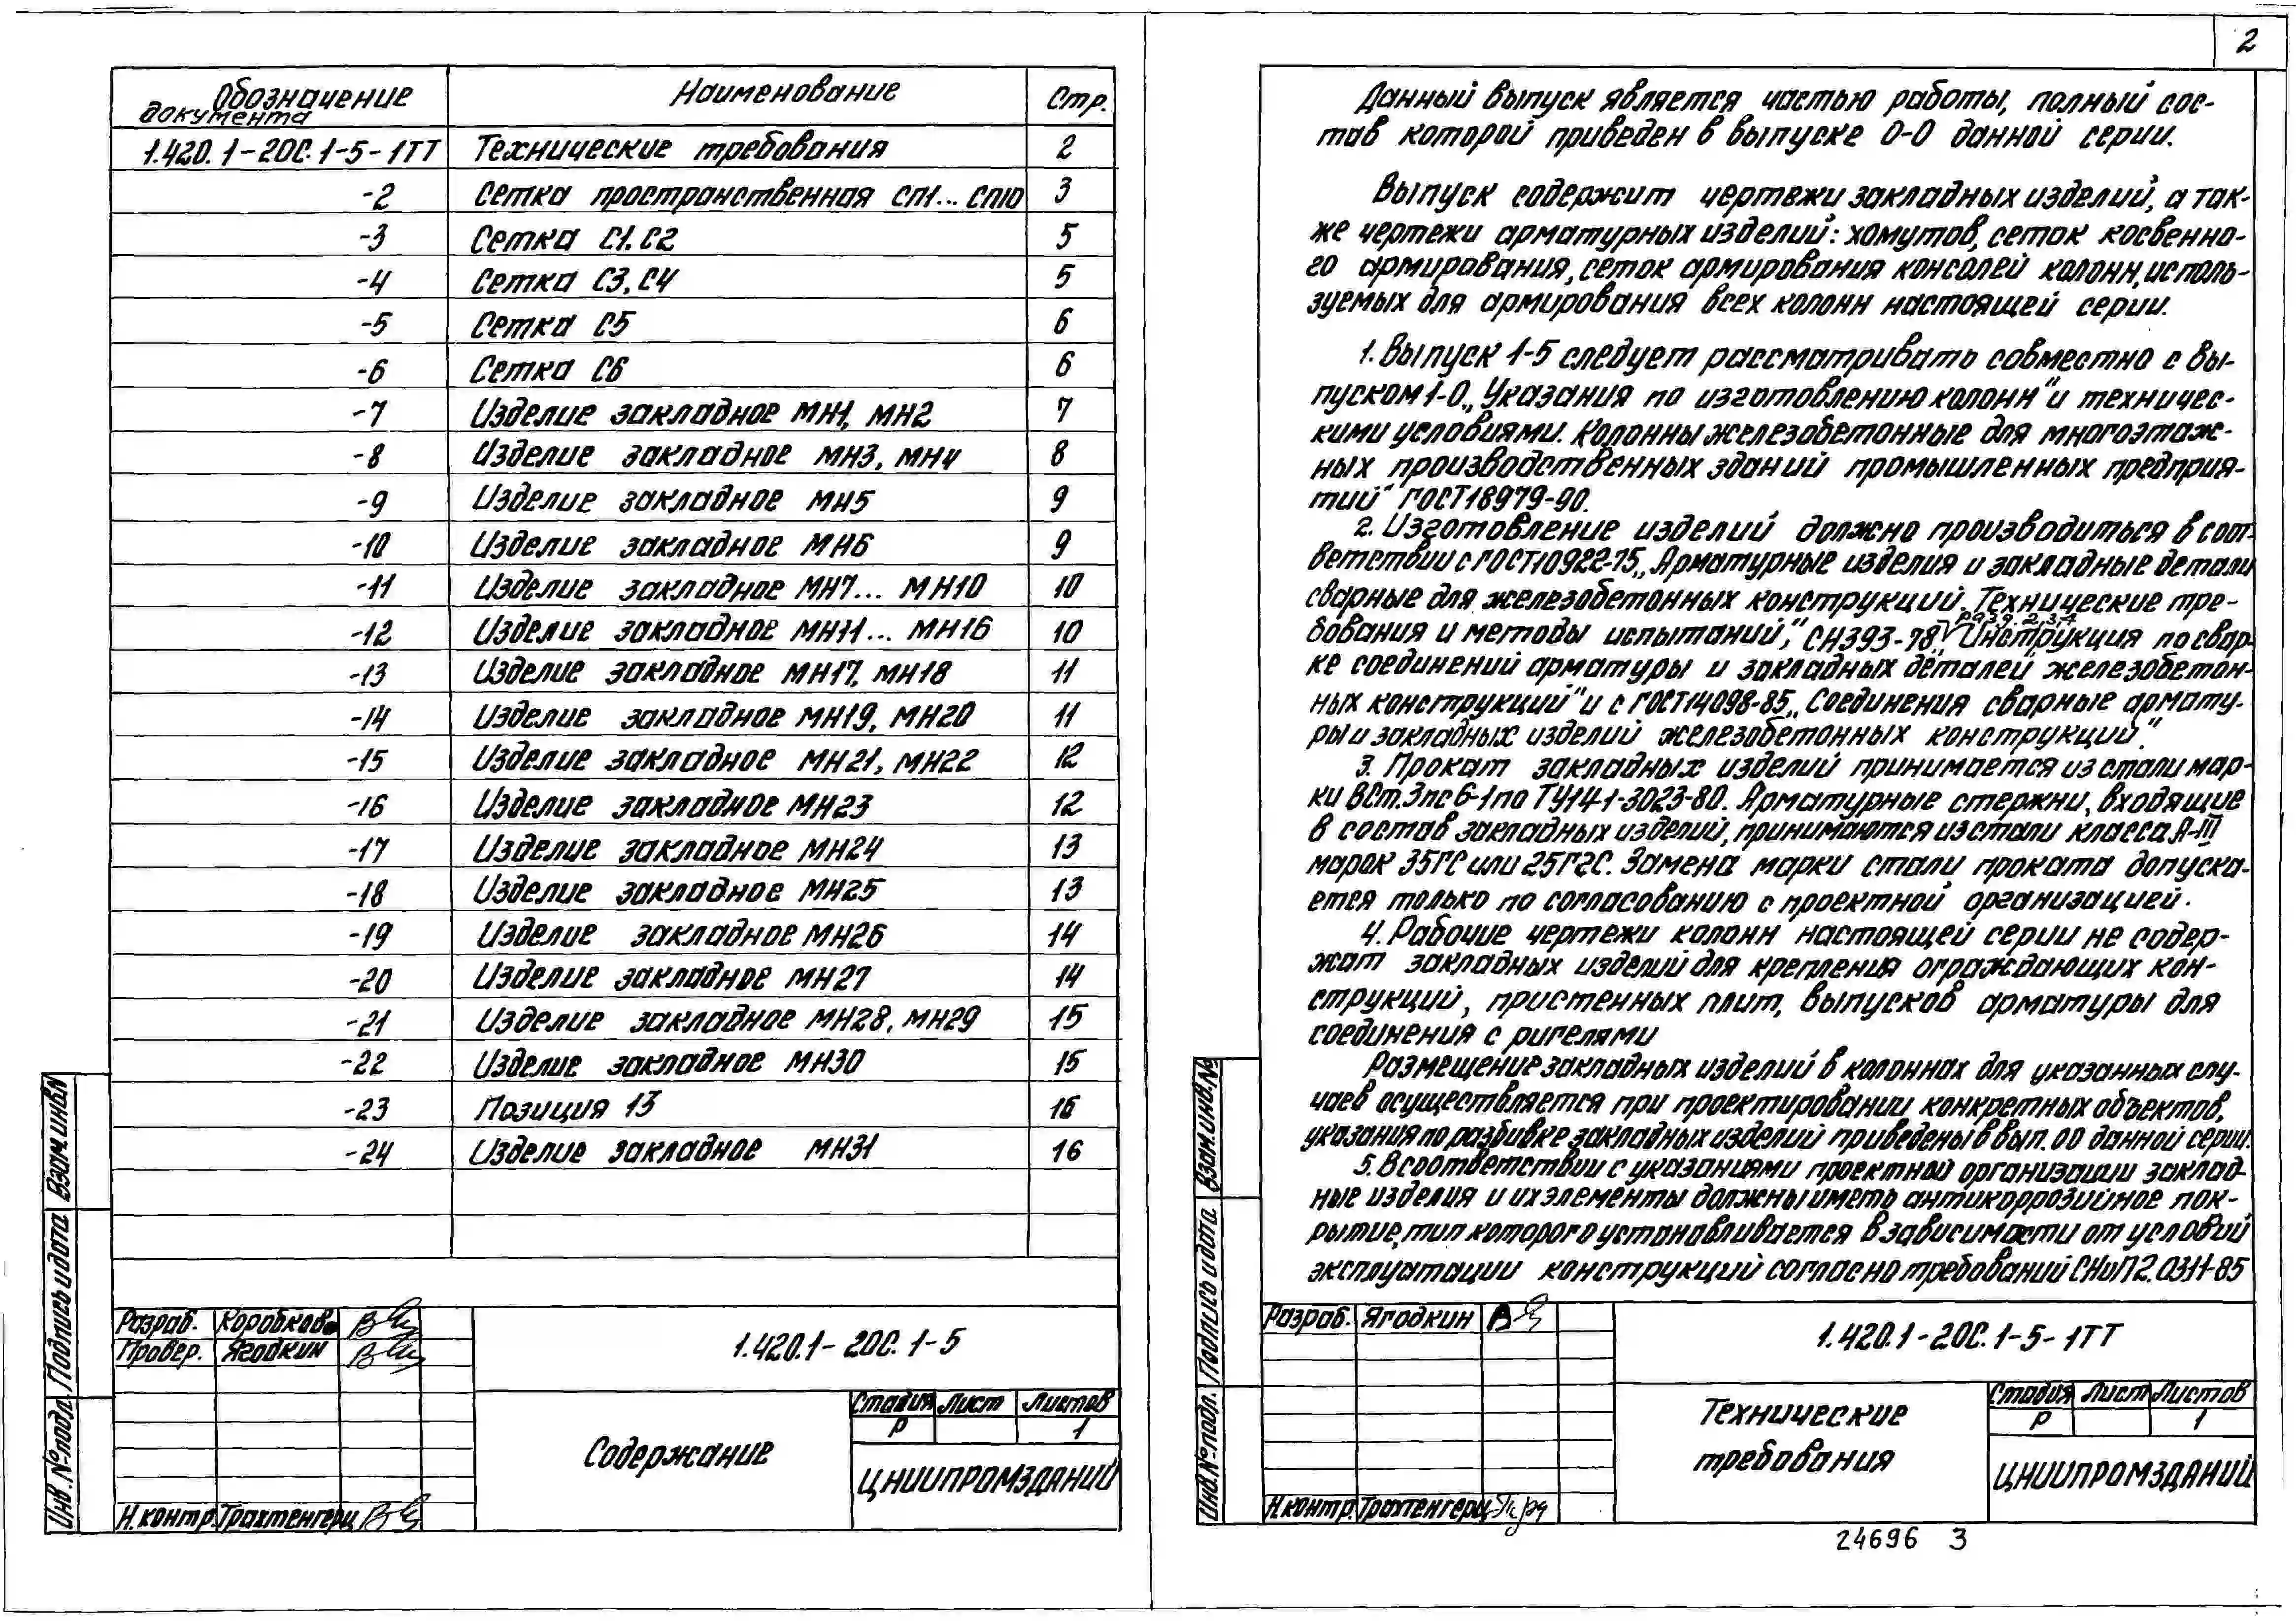 Обозначение документа Наименование Стр.
1.420.1-20С.1-5-1ТТ Технические требования 2
-2 Сетка пространственная СП1...СП10 3
-3 Сетка С1, С2 5
-4 Сетка С3, С4 5
-5 Сетка С5 6
-6 Сетка С6 6
-7 Изделие закладное МН1, МН2 7
-8 Изделие закладное МН3, МН4 8
-9 Изделие закладное МН5 9
-10 Изделие закладное МН6 9
-11 Изделие закладное МН7... МН10 10
-12 Изделие закладное МН11... МН16 10
-13 Изделие закладное МН17, МН18 11
-14 Изделие закладное МН19, МН20 11
-15 Изделие закладное МН21, МН22 12
-16 Изделие закладное МН23 12
-17 Изделие закладное МН24 13
-18 Изделие закладное МН25 13
-19 Изделие закладное МН26 14
-20 Изделие закладное МН27 14
-21 Изделие закладное МН28, МН29 15
-22 Изделие закладное МН30 15
-23 Позиция 13 16
-24 Изделие закладное МН31 16
Взам.инв№
Подпись и дата
Инв.№подл.
Разраб. Коробков
Провер. Ягодкин
Н.контр. Трахтенгерц
1.420.1-20С.1-5
Содержание
Стадия Лист Листов
Р 1
ЦНИИПРОМЗДАНИЙ
2
Данный выпуск является частью работы, полный сос-
тав которой приведен в выпуске 0-0 данной серии.
Выпуск содержит чертежи закладных изделий, а так-
же чертежи арматурных изделий: хомутов, сеток косвенно-
го армирования, сеток армирования консолей колонн, исполь-
зуемых для армирования всех колонн настоящей серии.
1. Выпуск 1-5 следует рассматривать совместно с вы-
пуском 1-0 „Указания по изготовлению колонн" и техничес-
кими условиями. Колонны железобетонные для многоэтаж-
ных производственных зданий промышленных предприя-
тий" ГОСТ18979-90.
2. Изготовление изделий должно производиться в соот-
ветствии с ГОСТ10922-75 „Арматурные изделия и закладные детали
сварные для железобетонных конструкций. Технические тре-
бования и методы испытаний", СН393-78 разд. 2,3,4 „Инструкция по свар-
ке соединений арматуры и закладных деталей железобетон-
ных конструкций" и с ГОСТ14098-85 „Соединения сварные армату-
ры и закладных изделий железобетонных конструкций".
3. Прокат закладных изделий принимается из стали мар-
ки ВСт.3пс6-1 по ТУ14-1-3023-80. Арматурные стержни, входящие
в состав закладных изделий, принимаются из стали класса А-III
марок 35ГС или 25Г2С. Замена марки стали проката допуска-
ется только по согласованию с проектной организацией.
4. Рабочие чертежи колонн настоящей серии не содер-
жат закладных изделий для крепления ограждающих кон-
струкций, пристенных плит, выпусков арматуры для
соединения с ригелями
Размещение закладных изделий в колоннах для указанных слу-
чаев осуществляется при проектировании конкретных объектов,
указания по разбивке закладных изделий приведены в вып. 00 данной серии.
5. В соответствии с указаниями проектной организации заклад-
ные изделия и их элементы должны иметь антикоррозийное пок-
рытие, тип которого устанавливается в зависимости от условий
эксплуатации конструкций согласно требований СНиП 2.03.11-85
Взам.инв.№
Подпись и дата
Инв.№подл.
Разраб. Ягодкин
Н.контр. Трахтенгерц
1.420.1-20С.1-5-1ТТ
Технические
требования
Стадия Лист Листов
Р 1
ЦНИИПРОМЗДАНИЙ
24696 3